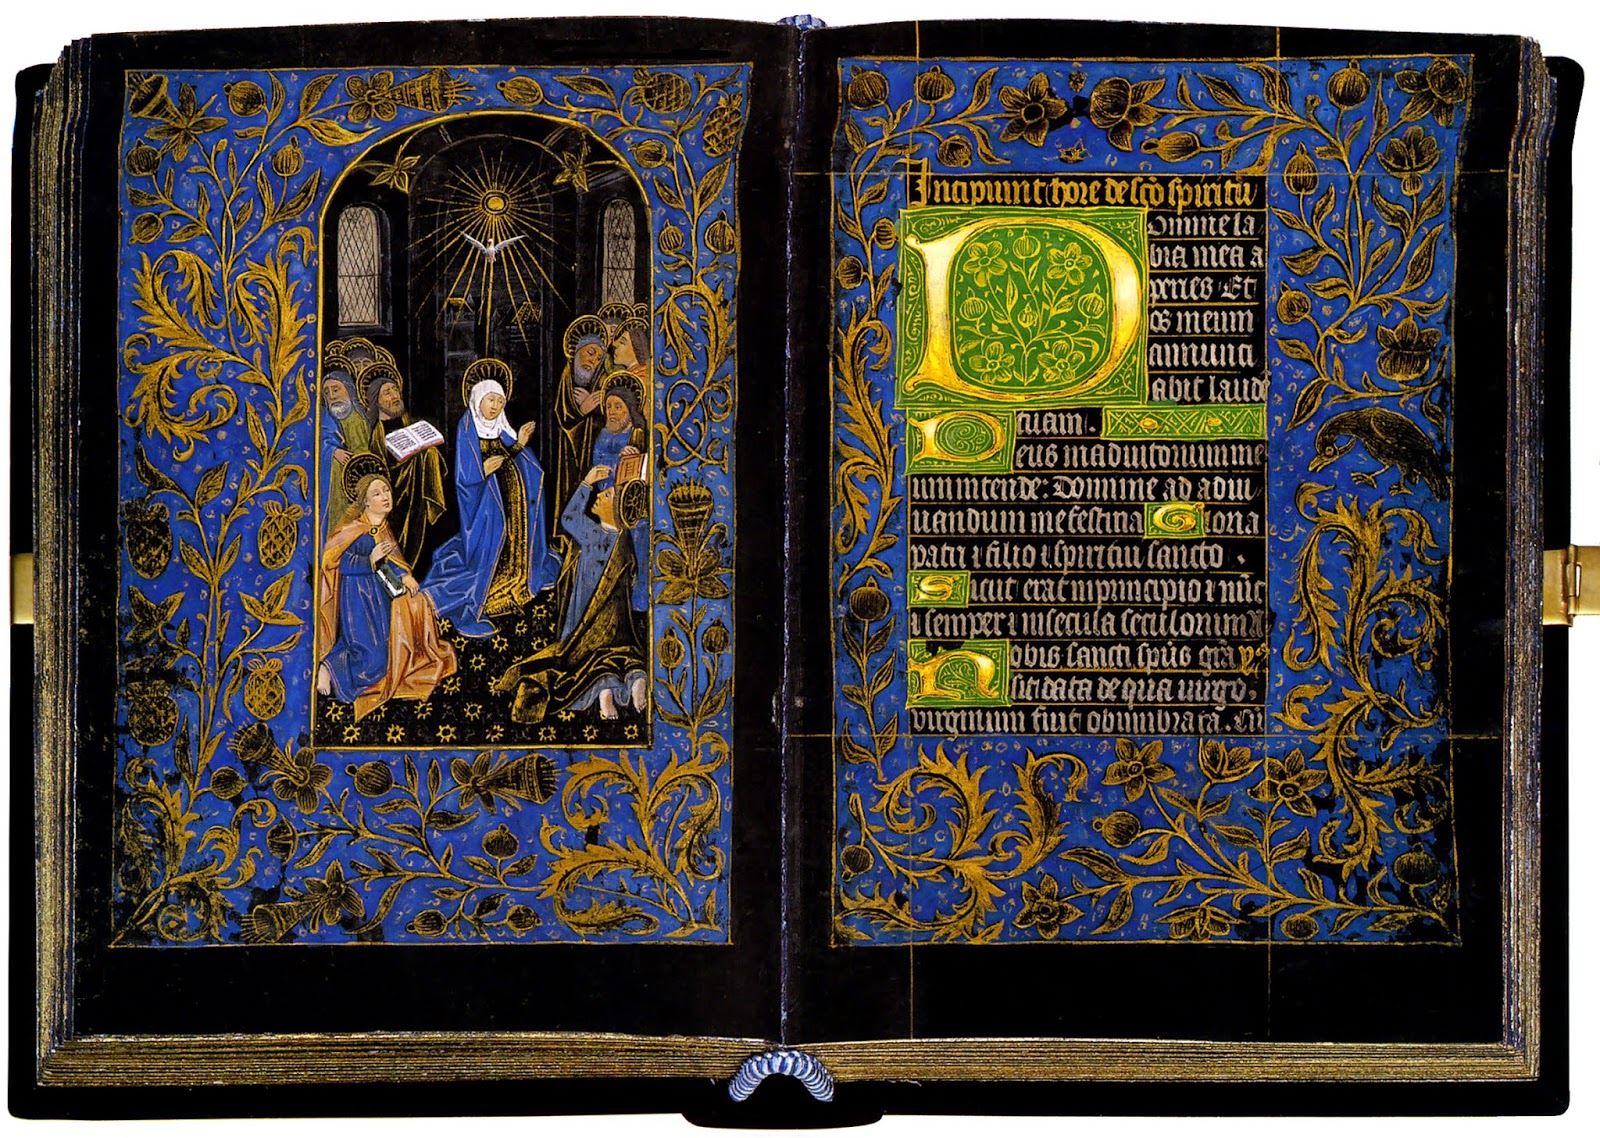 Incipiunt hore de sc̄o spiritu
Domine la
bia mea a
peries Et
os meum
annunti
abit laudē
tuam.
Deus in adiutorium me
um intende: Domine ad adiu
uandum me festina Gloria
patri ⁊ filio ⁊ spiritui sancto.
Sicut erat in principio ⁊ nūc
⁊ semper ⁊ in secula seculorum A
Nobis sancti spūs gra
sit data de qua uirgo.
virginum fuit obumbrata. Cū